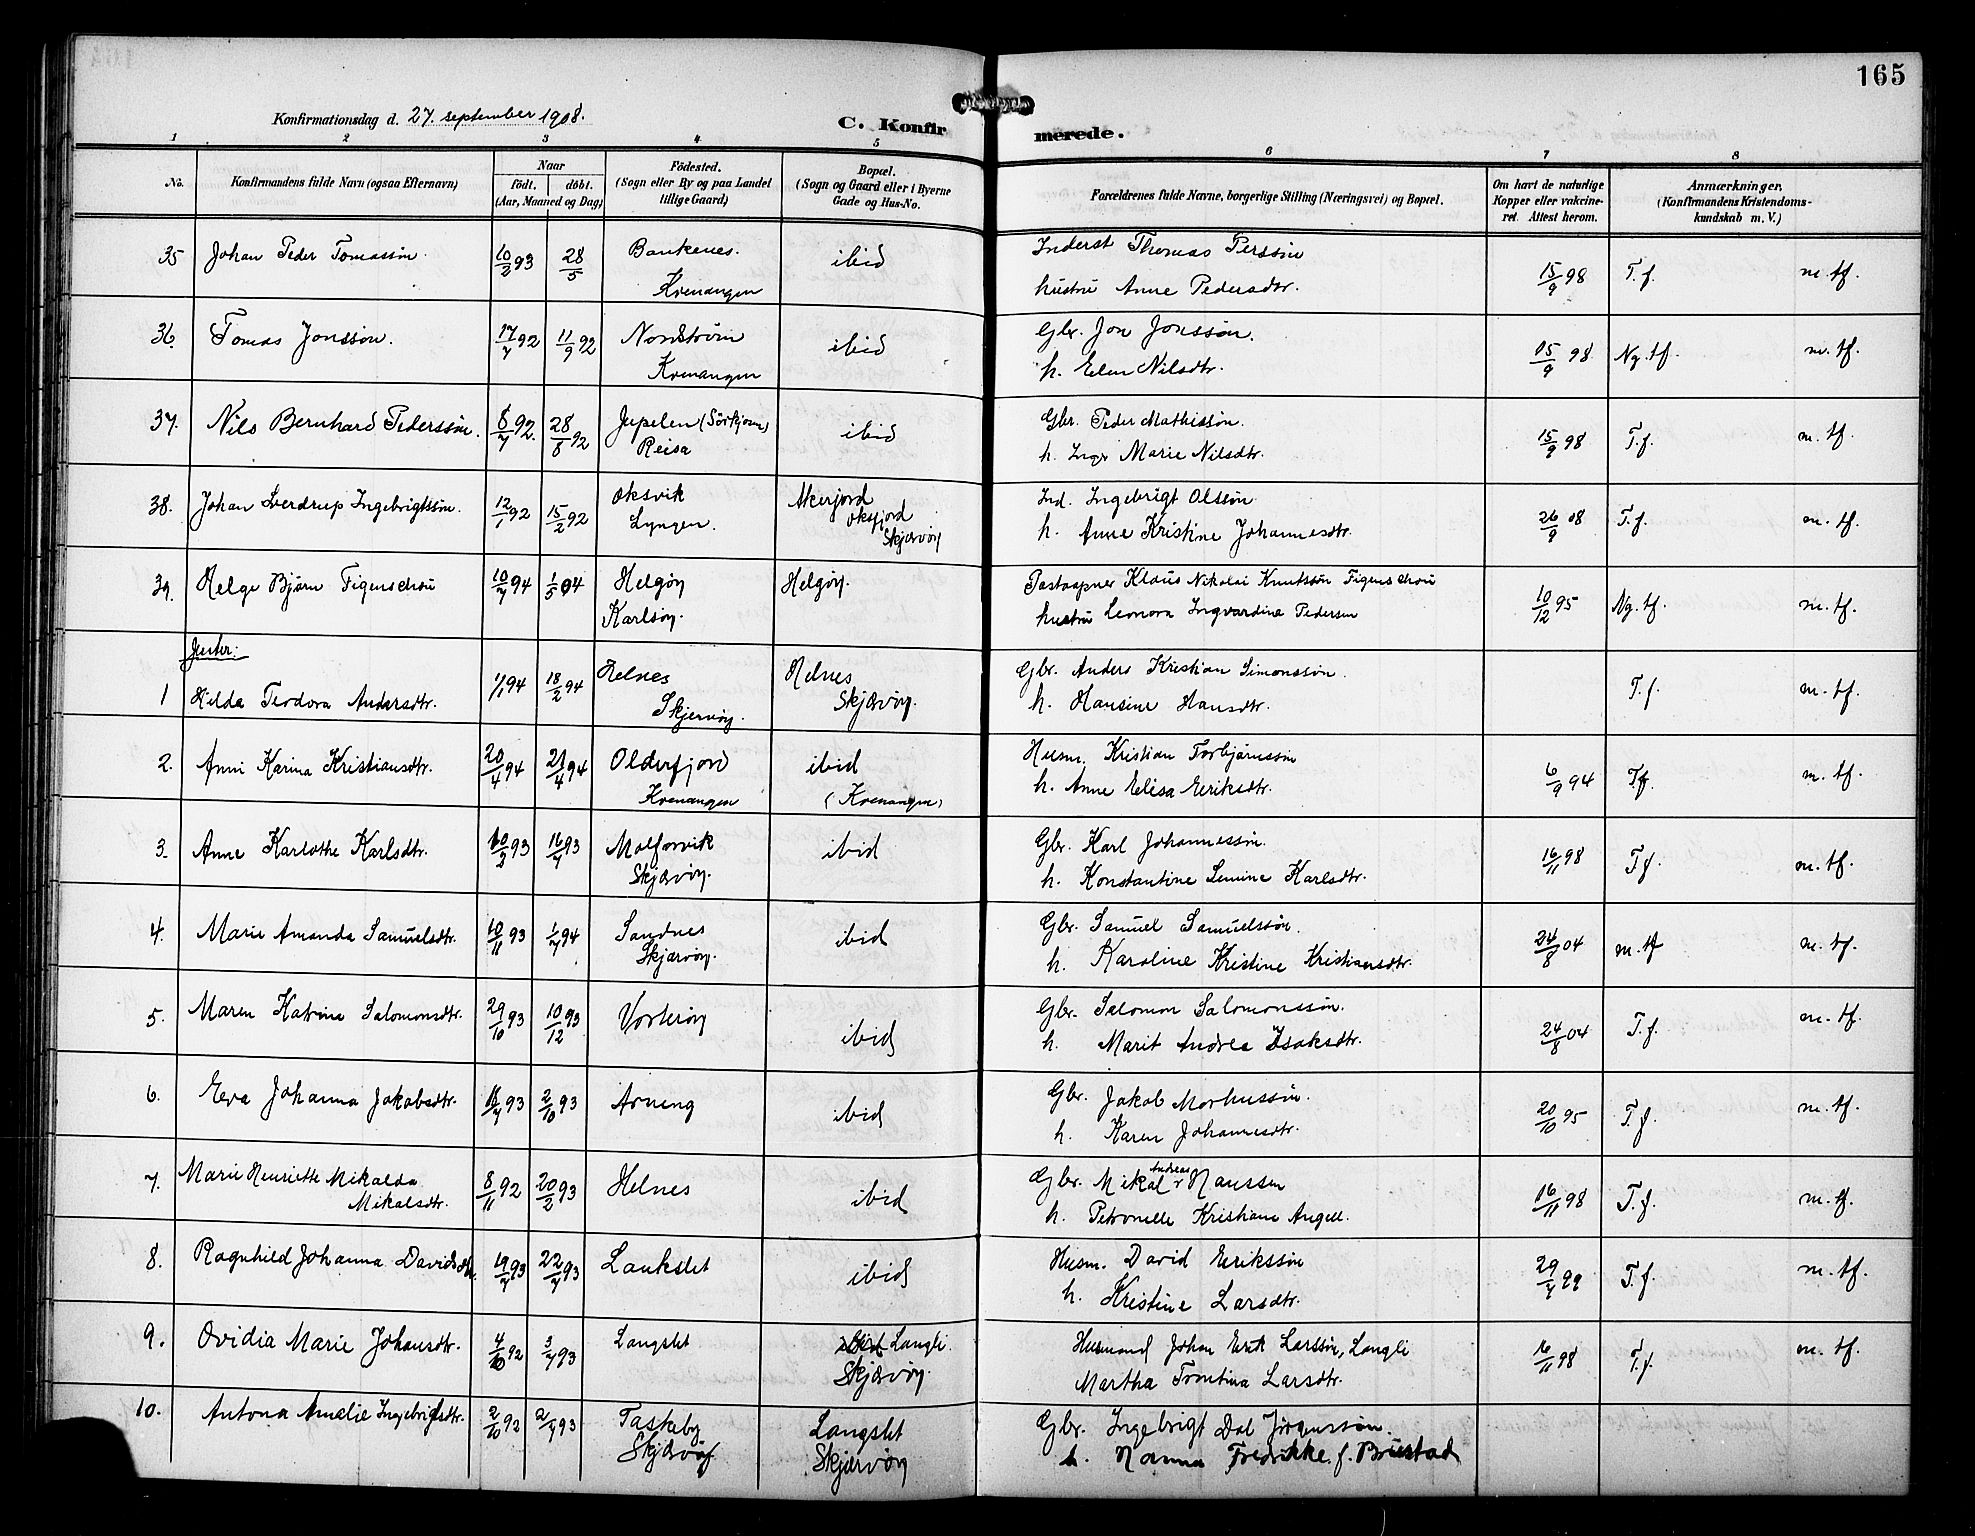 165
Konfirmationsdag d. 27. september 1908.
C. Konfirmerede.
1 2 3 4 5 6 7 8
No.
Konfirmandens fulde Navn (ogsaa Efternavn)
Naar
födt. döbt.
(Aar, Maaned og Dag)
Födested.
(Sogn eller By og paa Landet
tillige Gaard)
Bopæl.
(Sogn og Gaard eller i Byerne
Gade og Hus-No.
Forældrenes fulde Navne, borgerlige Stilling (Næringsvei) og Bopæl.
Om havt de naturlige
Kopper eller vakcine-
ret. Attest herom.
Anmærkninger.
(Konfirmandens Kristendoms-
kundskab m. V.)
35 Johan Peder Tomassøn. 10/2 93 28/5 Bankenes. ibid Inderst Thomas Perssøn 15/9 98 T.f. m. tf.
Kvenangen hustru Anne Pedersdtr.
36. Tomas Jonssøn. 17/7 92 11/9 92 Nordstrøm ibid Gbr. Jon Jonssøn. 15/9 98 Ng. tf. m. tf.
Kvenangen h. Elen Nilsdtr.
37. Nils Bernhard Pederssøn. 8/7 92. 28/8 92 Jupelen (Sörkjosen) ibid Gbr. Peder Mathissøn. 15/9 98 T.f. m. tf.
Reisa h. Inger Marie Nilsdtr.
38. Johan Sverdrup Ingebrigtssøn. 12/1 92 15/2 92 Oksvik Akerjord Ind. Ingebrigt Olssøn 26/9 08 T.f. m. tf.
Lyngen. Oksfjord
Skjærvøy h. Anne Kristine Johannesdtr.
39. Helge Bjørn Figenschou 10/7 94 1/5 94 Helgøy Helgøy. Postaapner Klaus Nikolai Knutssøn Figenschou 10/12 95 Ng. tf. m. tf.
Karlsøy. hustru Leonora Ingvardine Pedersen
Jenter:
1 Hilda Teodora Andersdtr. 1/1 94 18/2 94 Helnes Helnes Gbr. Anders Kristian Simonssøn. T.f. m. tf.
Skjervøy. Skjærvøy. h. Hansine Hansdtr.
2. Anni Karina Kristiansdtr. 20/4 94 21/4 94 Olderfjord ibid Husm. Kristian Torbjørnssøn 6/9 94 T.f. m. tf.
Kvenangen (Kvenangen) h. Anne Elisa Eriksdtr.
3. Anne Karlothe Karlsdtr. 10/2 93 16/4 93 Molforvik ibid Gbr. Karl Johannessøn. 16/11 98 T.f. m. tf.
Skjærvøy. h. Konstantine Lemine Karlsdtr.
4. Marie Amanda Samuelsdtr. 10/11 93 1/4 94 Sandnes ibid Gbr. Samuel Samuelssøn. 24/8 04 m. tf m. tf.
Skjærvøy. h. Karoline Kristine Kristiansdtr.
5. Maren Katrine Salomonsdtr. 29/10 93 10/12 93 Vorterøy ibid Gbr. Salomon Salomonssøn. 24/8 04 T.f. m. tf.
h. Marit Andrea Isaksdtr.
6. Eva Johanna Jakobsdtr. 93 2/10 93 Arneng ibid Gbr. Jakob Morhussøn. 20/10 95 T.f. m. tf.
h. Karen Johannesdtr.
7. Marie Henriette Mikalda 8/11 92 20/2 93 Helnes ibid Gbr. Mikal Andreas Hanssen 16/11 98 T.f. m. tf.
Mikalsdtr. h. Petronelle Kristiane Angell.
8. Ragnhild Johanna Davidsdtr. 19/4 93 22/7 93 Laukslet ibid Husm. David Erikssøn 29/7 99 T.f. m. tf.
h. Kristine Larsdtr.
9. Ovidia Marie Johansdtr. 4/10 92 3/4 93 Langslet ibid Langli. Husmand Johan Erik Larssøn, Langli 16/11 98 T.f. m. tf.
Skjærvøy. Martha Tomtina Larsdtr.
10. Antona Amalie Ingebrigtsdtr. 2/10 92 2/4 93 Taskeby Langslet Gbr. Ingebrigt Dal Jörgenssøn.
Skjærvøy Skjærvøy h. Hanna Fredrikke f. Brustad